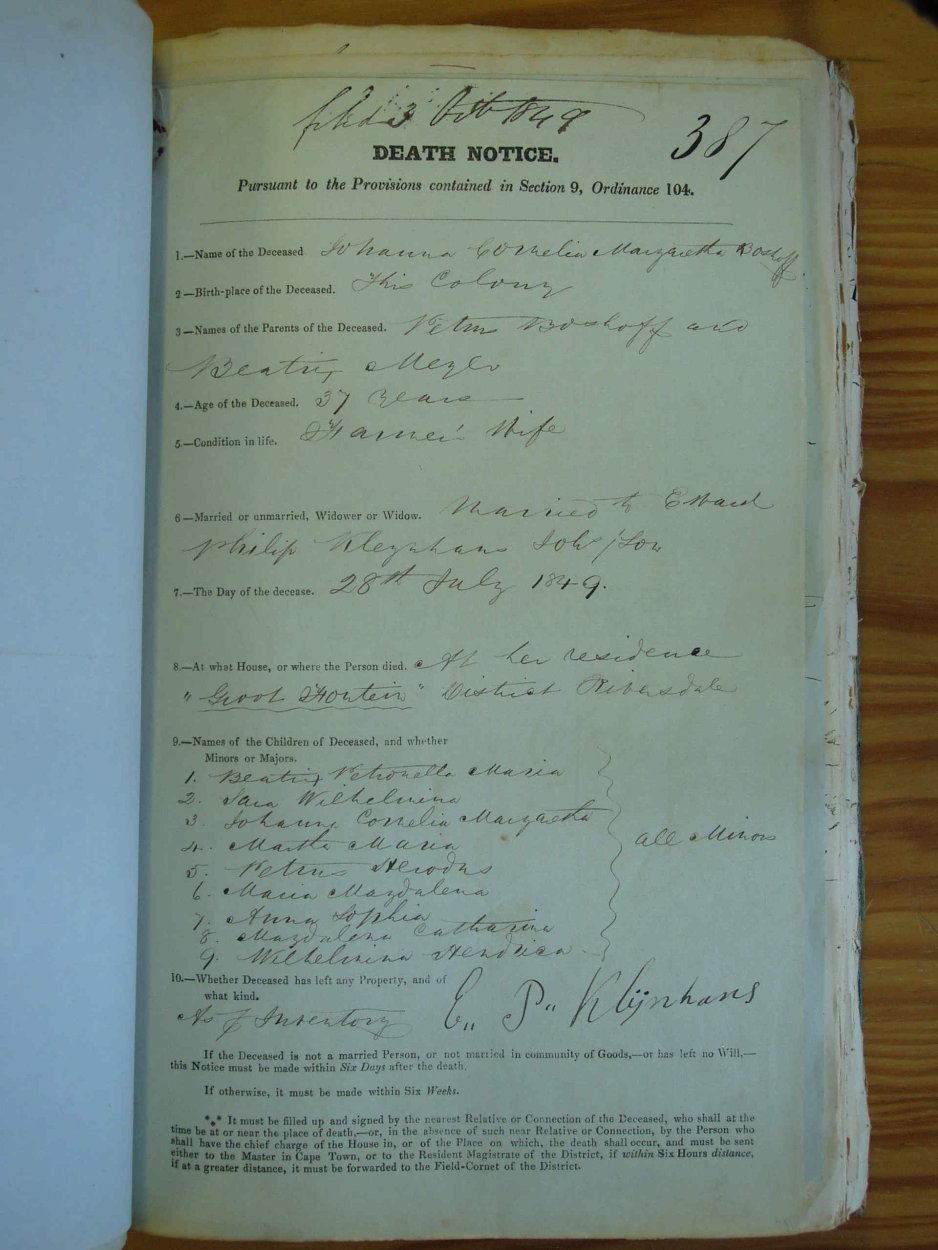 filed 3 Oct 1849
387
DEATH NOTICE.
Pursuant to the Provisions contained in Section 9, Ordinance 104.
1.—Name of the Deceased Johanna Cornelia Margaretha Boshoff
2—Birth-place of the Deceased. This Colony
3—Names of the Parents of the Deceased. Petrus Boshoff and
Beatrix Meyer
4.—Age of the Deceased. 37 Years
5—Condition in life. Farmer's Wife
6—Married or unmarried, Widower or Widow. Married to Eward
Philip Kleynhans Johs/Son
7.—The Day of the decease. 28th July 1849.
8.—At what House, or where the Person died. At her residence
"Groot Fontein" District Riversdale
9.—Names of the Children of Deceased, and whether
Minors or Majors.
1. Beatrix Petronella Maria
2. Sara Wilhelmina
3. Johanna Cornelia Margaretha
4. Martha Maria
all Minors
5. Petrus Herodus
6. Maria Magdalena
7. Anna Sophia
8. Magdalena Catharina
9. Wilhelmina Hendrica
10.—Whether Deceased has left any Property, and of
what kind.
As p Inventory
E,, P,, Kleijnhans
If the Deceased is not a married Person, or not married in community of Goods,—or has left no Will,—
this Notice must be made within Six Days after the death.
If otherwise, it must be made within Six Weeks.
*** It must be filled up and signed by the nearest Relative or Connection of the Deceased, who shall at the
time be at or near the place of death,—or, in the absence of such near Relative or Connection, by the Person who
shall have the chief charge of the House in, or of the Place on which, the death shall occur, and must be sent
either to the Master in Cape Town, or to the Resident Magistrate of the District, if within Six Hours distance,
if at a greater distance, it must be forwarded to the Field-Cornet of the District.